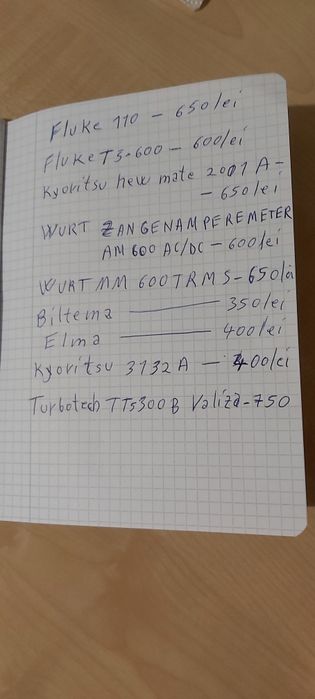 Fluke 110 - 650 lei
Fluke T5-600 - 600 lei
Kyoritsu hew mate 2001 A -
- 650 lei
WURT ZANGENAMPEREMETER
AM 600 AC/DC - 600 lei
WURT MM 600 TRMS - 650 lei
Biltema — 350 lei
Elma — 400 lei
Kyoritsu 3132 A — 400 lei
Turbotech TT5300B Valiza - 750